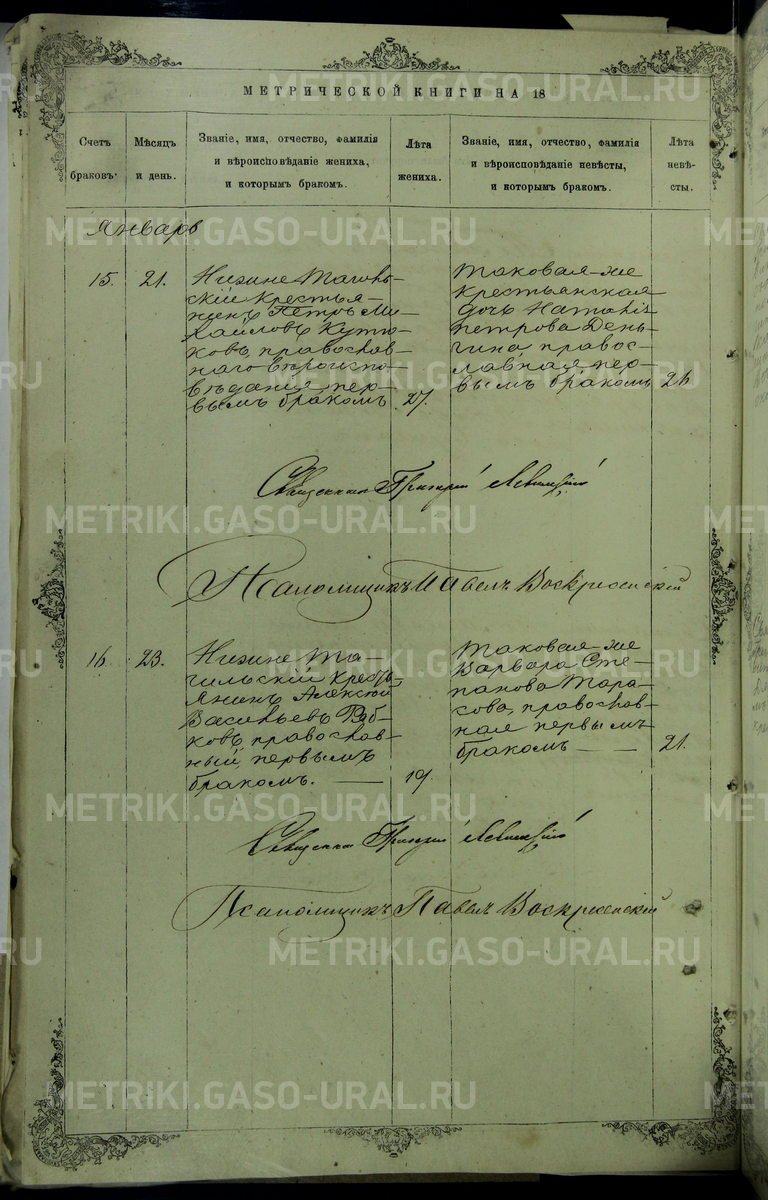 МЕТРИЧЕСКОЙ КНИГИ НА 18
Счетъ браковъ.
Мѣсяцъ и день.
Званіе, имя, отчество, фамилія
и вѣроисповѣданіе жениха,
и которымъ бракомъ.
Лѣта жениха.
Званіе, имя, отчество, фамилія
и вѣроисповѣданіе невѣсты,
и которымъ бракомъ.
Лѣта невѣ-
сты.
Январь
15. 21.
Нижне Тагиль-
скій крестья-
нинъ Петръ Ми-
хайловъ Кутю-
ковъ, православ-
наго вѣроиспо-
вѣданія пер-
вымъ бракомъ 27.
таковая-же
крестьянская
дочь Наталія
Петрова День-
гина правос-
лавная пер-
вымъ бракомъ 26
Священникъ Григорій Левицкій
Псаломщикъ Павелъ Воскресенскій
16. 23.
Нижне Та-
гильскій кресть-
янинъ Алексій
Васильевъ
православ-
ный первымъ
бракомъ. 19.
таковая-же
Варвара Сте-
панова Тара-
сова, православ-
ная первымъ
бракомъ 21.
Священникъ Григорій Левицкій
Псаломщикъ Павелъ Воскресенскій
METRIKI.GASO-URAL.RU